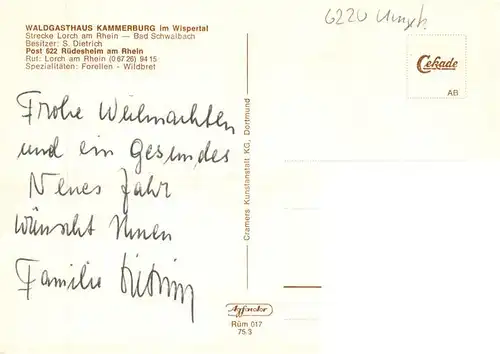 WALDGASTHAUS KAMMERBURG im Wispertal
Strecke Lorch am Rhein — Bad Schwalbach
Besitzer: S. Dietrich
Post 622 Rüdesheim am Rhein
Ruf: Lorch am Rhein (0 67 26) 94 15
Spezialitäten: Forellen - Wildbret
6220
Cekade
AB
Frohe Weihnachten
und ein Gesundes
Neues Jahr
wünscht Ihnen
Familie
Cramers Kunstanstalt KG, Dortmund
Rüm 017
75.3